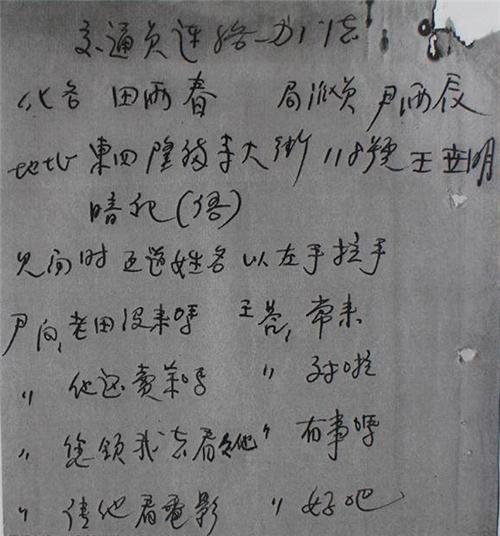 交通员连络办法
化名 田雨春 局派员 尹西辰
地址 東四隆福寺大街118號王世明
暗记(语)
见面时互道姓名以左手拉手
尹问,老田没来吗 王答,常来
〃 他还卖菜吗 〃 对啦
〃 您领我去看他 〃 有事吗
〃 请他看電影 〃 好吧